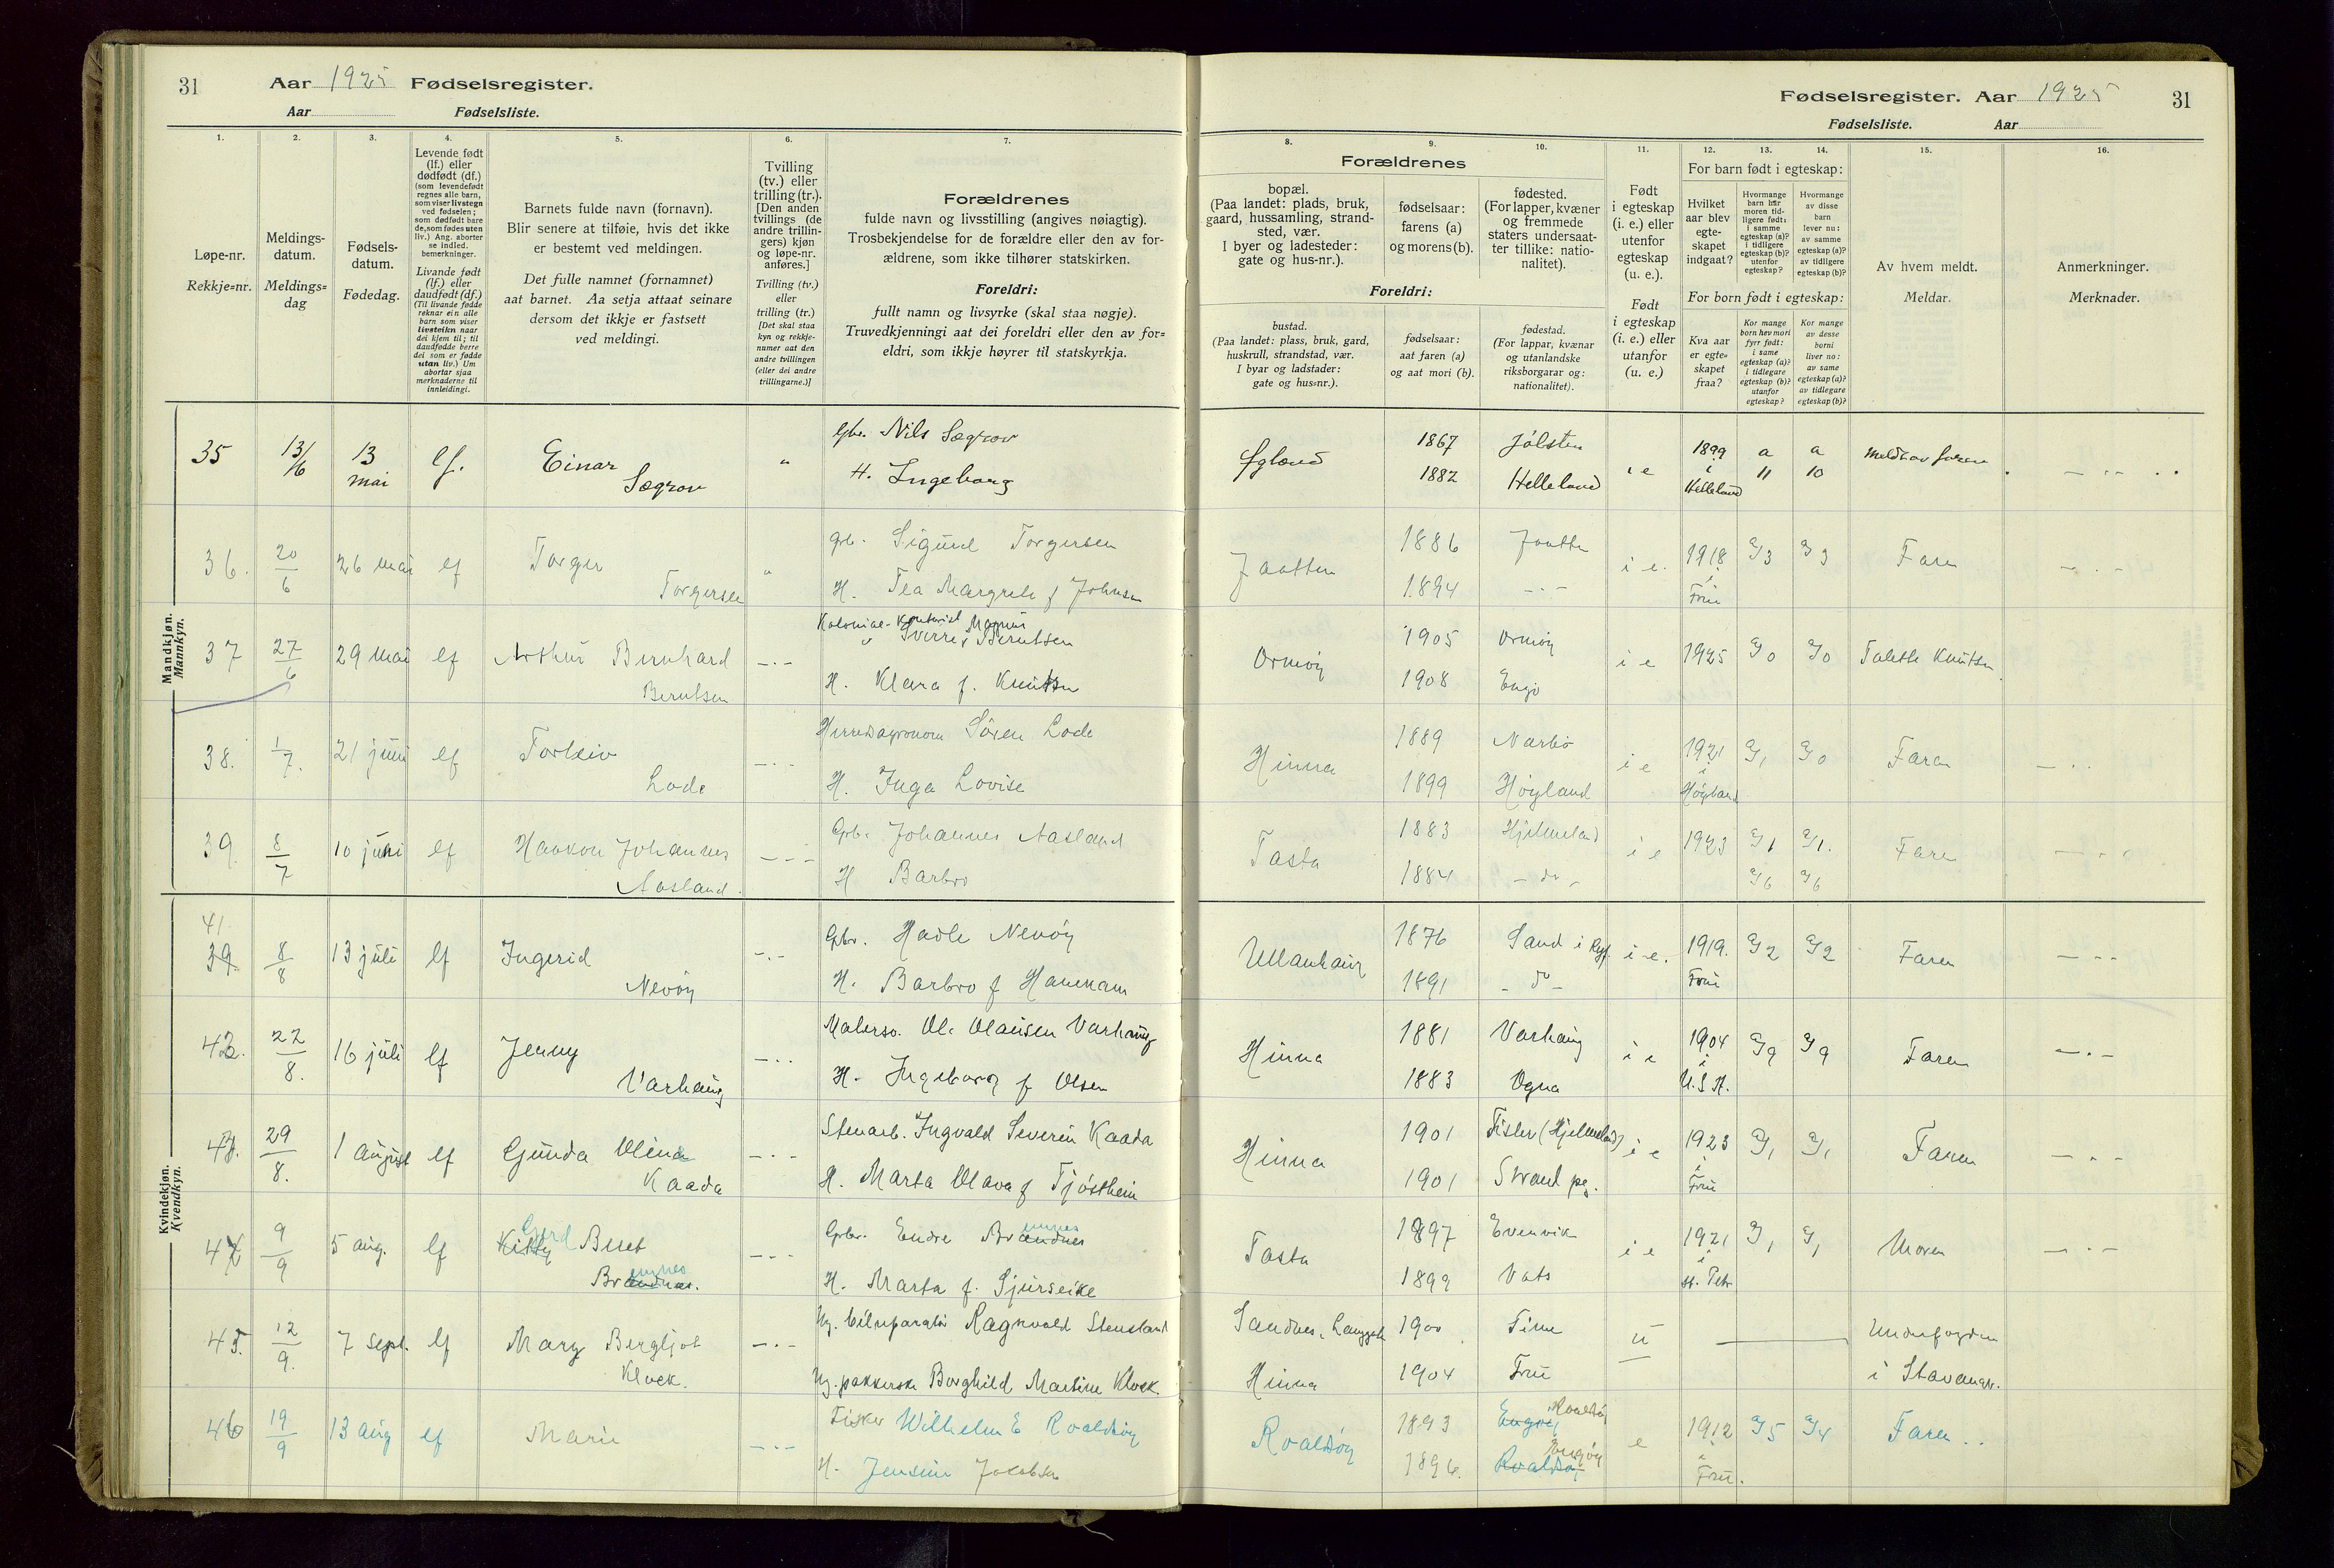 31 Aar 1925 Fødselsregister.
Aar Fødselsliste.
1. 2. 3. 4. 5. 6. 7.
Løpe-nr.
Rekkje=nr.
Meldings-
datum.
Meldings=
dag
Fødsels-
datum.
Fødedag.
Levende født
(lf.) eller
dødfødt (df.)
(som levendefødt
regnes alle barn,
som viser livstegn
ved fødselen;
som dødfødt bare
de, som fødes uten
liv.) Ang. aborter
se indled.
bemerkninger.
Livande født
(lf.) eller
daudfødt (df.)
(Til livande fødde
reknar ein alle
barn som viser
livsteikn naar
dei kjem til; til
daudfødde berre
dei som er fødde
utan liv.) Um
abortar sjaa
merknaderne til
innleidingi.
Barnets fulde navn (fornavn).
Blir senere at tilføie, hvis det ikke
er bestemt ved meldingen.
Det fulle namnet (fornamnet)
aat barnet. Aa setja attaat seinare
dersom det ikkje er fastsett
ved meldingi.
Tvilling
(tv.) eller
trilling (tr.).
[Den anden
tvillings (de
andre trillin-
gers) kjøn
og løpe-nr.
anføres.]
Tvilling (tv.)
eller
trilling (tr.)
[Det skal staa
kyn og rekkje-
numer aat den
andre tvillingen
(eller dei andre
trillingarne.)]
Forældrenes
fulde navn og livsstilling (angives nøiagtig).
Trosbekjendelse for de forældre eller den av for-
ældrene, som ikke tilhører statskirken.
Foreldri:
fullt namn og livsyrke (skal staa nøgje).
Truvedkjenningi aat dei foreldri eller den av for=
eldri, som ikkje høyrer til statskyrkja.
Mandkjøn.
Mannkyn.
35 13/6 13 mai lf. Einar Sægrov " Gbr. Nils Sægrov
H. Ingeborg
36. 20/6 26 mai lf Torger Torgersen " Grb. Sigurd Torgersen
H. Tea Margrete f Johnsen
37 27/6 29 mai lf Arthur Bernhard Berntsen – · – Kolonial- Magnus
Sverre Berntsen
H. Klara f. Knutsen
38. 1/7. 21 juni lf Torleiv Lode – · · Herredsagronom Sören Lode
H. Inga Lovise
39. 8/7 10 juni lf Haakon Johannes Aasland. – – – Grb. Johannes Aasland
H Barbro
Kvindekjøn.
Kvendkyn.
41
39. 8/8 13 juli lf Ingerid Nevöy – · – Gbr. Hadle Nevöy
H. Barbro f Hammam
42. 22/8. 16 juli lf Jenny Varhaug – · · Malersv. Ole Olausen Varhaug
H. Ingeborg f Olsen
43. 29/8. 1 august lf Gunda Olina Kaada – · – Stenarb. Ingvald Severin Kaada
H. Marta Olava f Tjöstheim
44 9/9 5 aug. lf Kitty Gjerd Beret Brandnes. – · – Gbr. Endre Brandnes
H. Marta f. Gjurseike
45. 12/9. 7 sept. lf Mary Bergljot Klock. – · – Ug. bilreparatör Ragnvald Stensland
Ug. pakkerske Borghild Martine Klock.
46 19/9 13 aug lf Marie – · – Fisker Wilhelm E Roaldsöy
H. Jensine Jakobsen
Fødselsregister. Aar 1925 31
Fødselsliste. Aar
8. 9. 10. 11. 12. 13. 14. 15. 16.
Forældrenes
bopæl.
(Paa landet: plads, bruk,
gaard, hussamling, strand-
sted, vær.
I byer og ladesteder:
gate og hus-nr.).
fødselsaar:
farens (a)
og morens (b).
fødested.
(For lapper, kvæner
og fremmede
staters undersaat-
ter tillike: natio-
nalitet).
Foreldri:
bustad.
(Paa landet: plass, bruk, gard,
huskrull, strandstad, vær.
I byar og ladstader:
gate og hus=nr.).
fødselsaar:
aat faren (a)
og aat mori (b).
fødestad.
(For lappar, kvænar
og utanlandske
riksborgarar og:
nationalitet).
Født
i egteskap
(i. e.) eller
utenfor
egteskap
(u. e.).
Født
i egteskap
(i. e.) eller
utanfor
egteskap
(u. e.)
For barn født i egteskap:
Hvilket
aar blev
egte-
skapet
indgaat?
Hvormange
barn har
moren tid-
ligere født:
i samme
egteskap (a)?
i tidligere
egteskap (b)?
utenfor
egteskap?
Hvormange
av disse
barn
lever nu:
av samme
egteskap (a)?
av tidligere
egteskap (b)?
For born født i egteskap:
Kva aar
er egte=
skapet
fraa?
Kor mange
born hev mori
fyrr født:
i same
egteskap (a)?
i tidlegare
egteskap (b)?
utanfor
egteskap?
Kor mange
av desse
borni
liver no:
av same
egteskap (a)?
av tidlegare
egteskap (b)?
Av hvem meldt.
Meldar.
Anmerkninger.
Merknader.
1867 Jölster i e 1899 i Helleland a 11 a 10 – · · ·
1882 Helleland
Jaatten 1886 Jaatten i e. 1918 i Frue a) 3 a) 3 Faren – · –
1894 – · –
Ormöy 1905 Ormöy i e 1925 a) 0 a) 0 Talette Knutsen
1908 Engö
Hinna 1889 Narbö i e 1921 i Höyland a) 1 a) 0 Faren – · ·
1899 Höyland
Tasta 1883 Hjelmeland i e 1923 a) 1 a) 1. Faren – · ·
1884 – do – b) 6 b) 6
Ullanhaug 1876 Sand i Ryf. i e. 1919. Frue a) 2 a) 2 Faren – · ·
1891 – do –
Hinna 1881 Varhaug i e 1904 i U.S.A. a) 9 a) 9 Faren – · –
1883 Ogna
Hinna 1901 Fister (Hjelmeland) i e 1923 i Frue a) 1 a) 1 Faren – · –
1901 Strand pg.
Tasta 1897 Evenvik i e 1921 i St. Petr a) 1 a) 1 Moren – · –
1899 Vats
Sandnes, Langgate 1900 Time u Underfogden
Hinna 1904 Frue i Stavanger.
Roaldsöy 1893 Engöy Roaldsöy e 1912 i Frue. a) 5 a) 4 Faren . .
1896. Roaldsöy Engöy